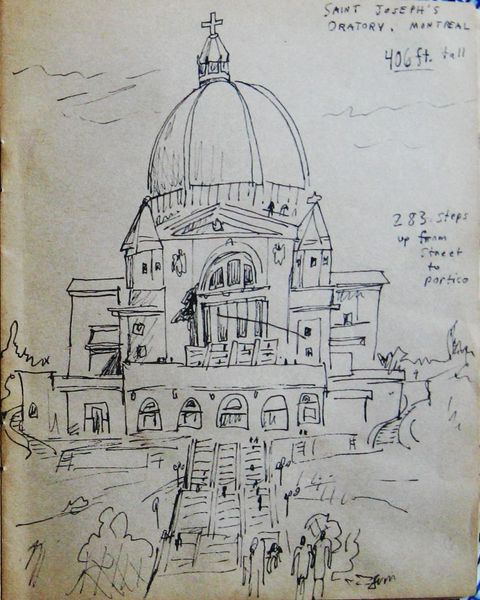 SAINT JOSEPH'S
ORATORY, MONTREAL
406 ft. tall
283 steps
up from
street
to
portico